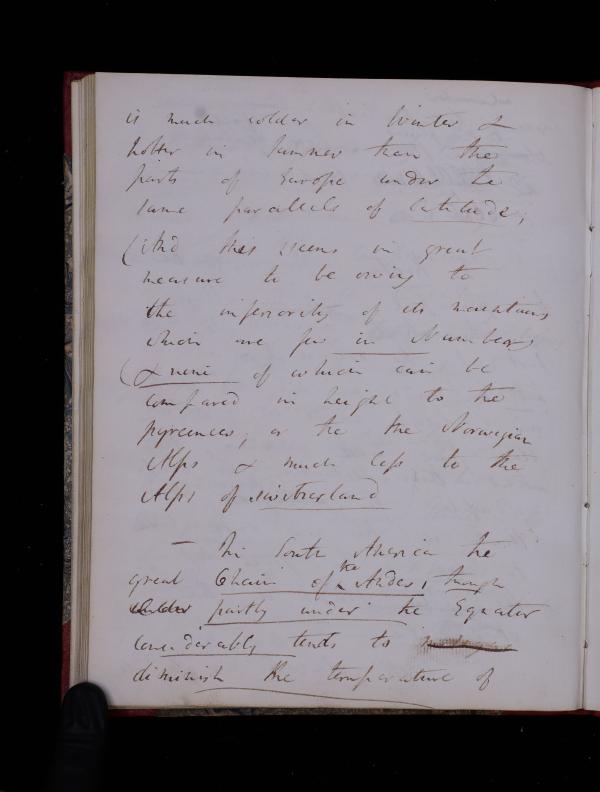 is much colder in Winter &
hotter in Summer than the
parts of Europe under the
same parallels of latitude,
(And this seems in great
measure to be owing to
the inferiority of its mountains
which are few in Numbers
(& none of which can be
compared in height to the
pyrenees, or to the Norwegian
Alps & much less to the
Alps of Switzerland
— In South America the
great Chain of the Andes, though
under partly under the Equator
considerably tends to
diminish the temperature of